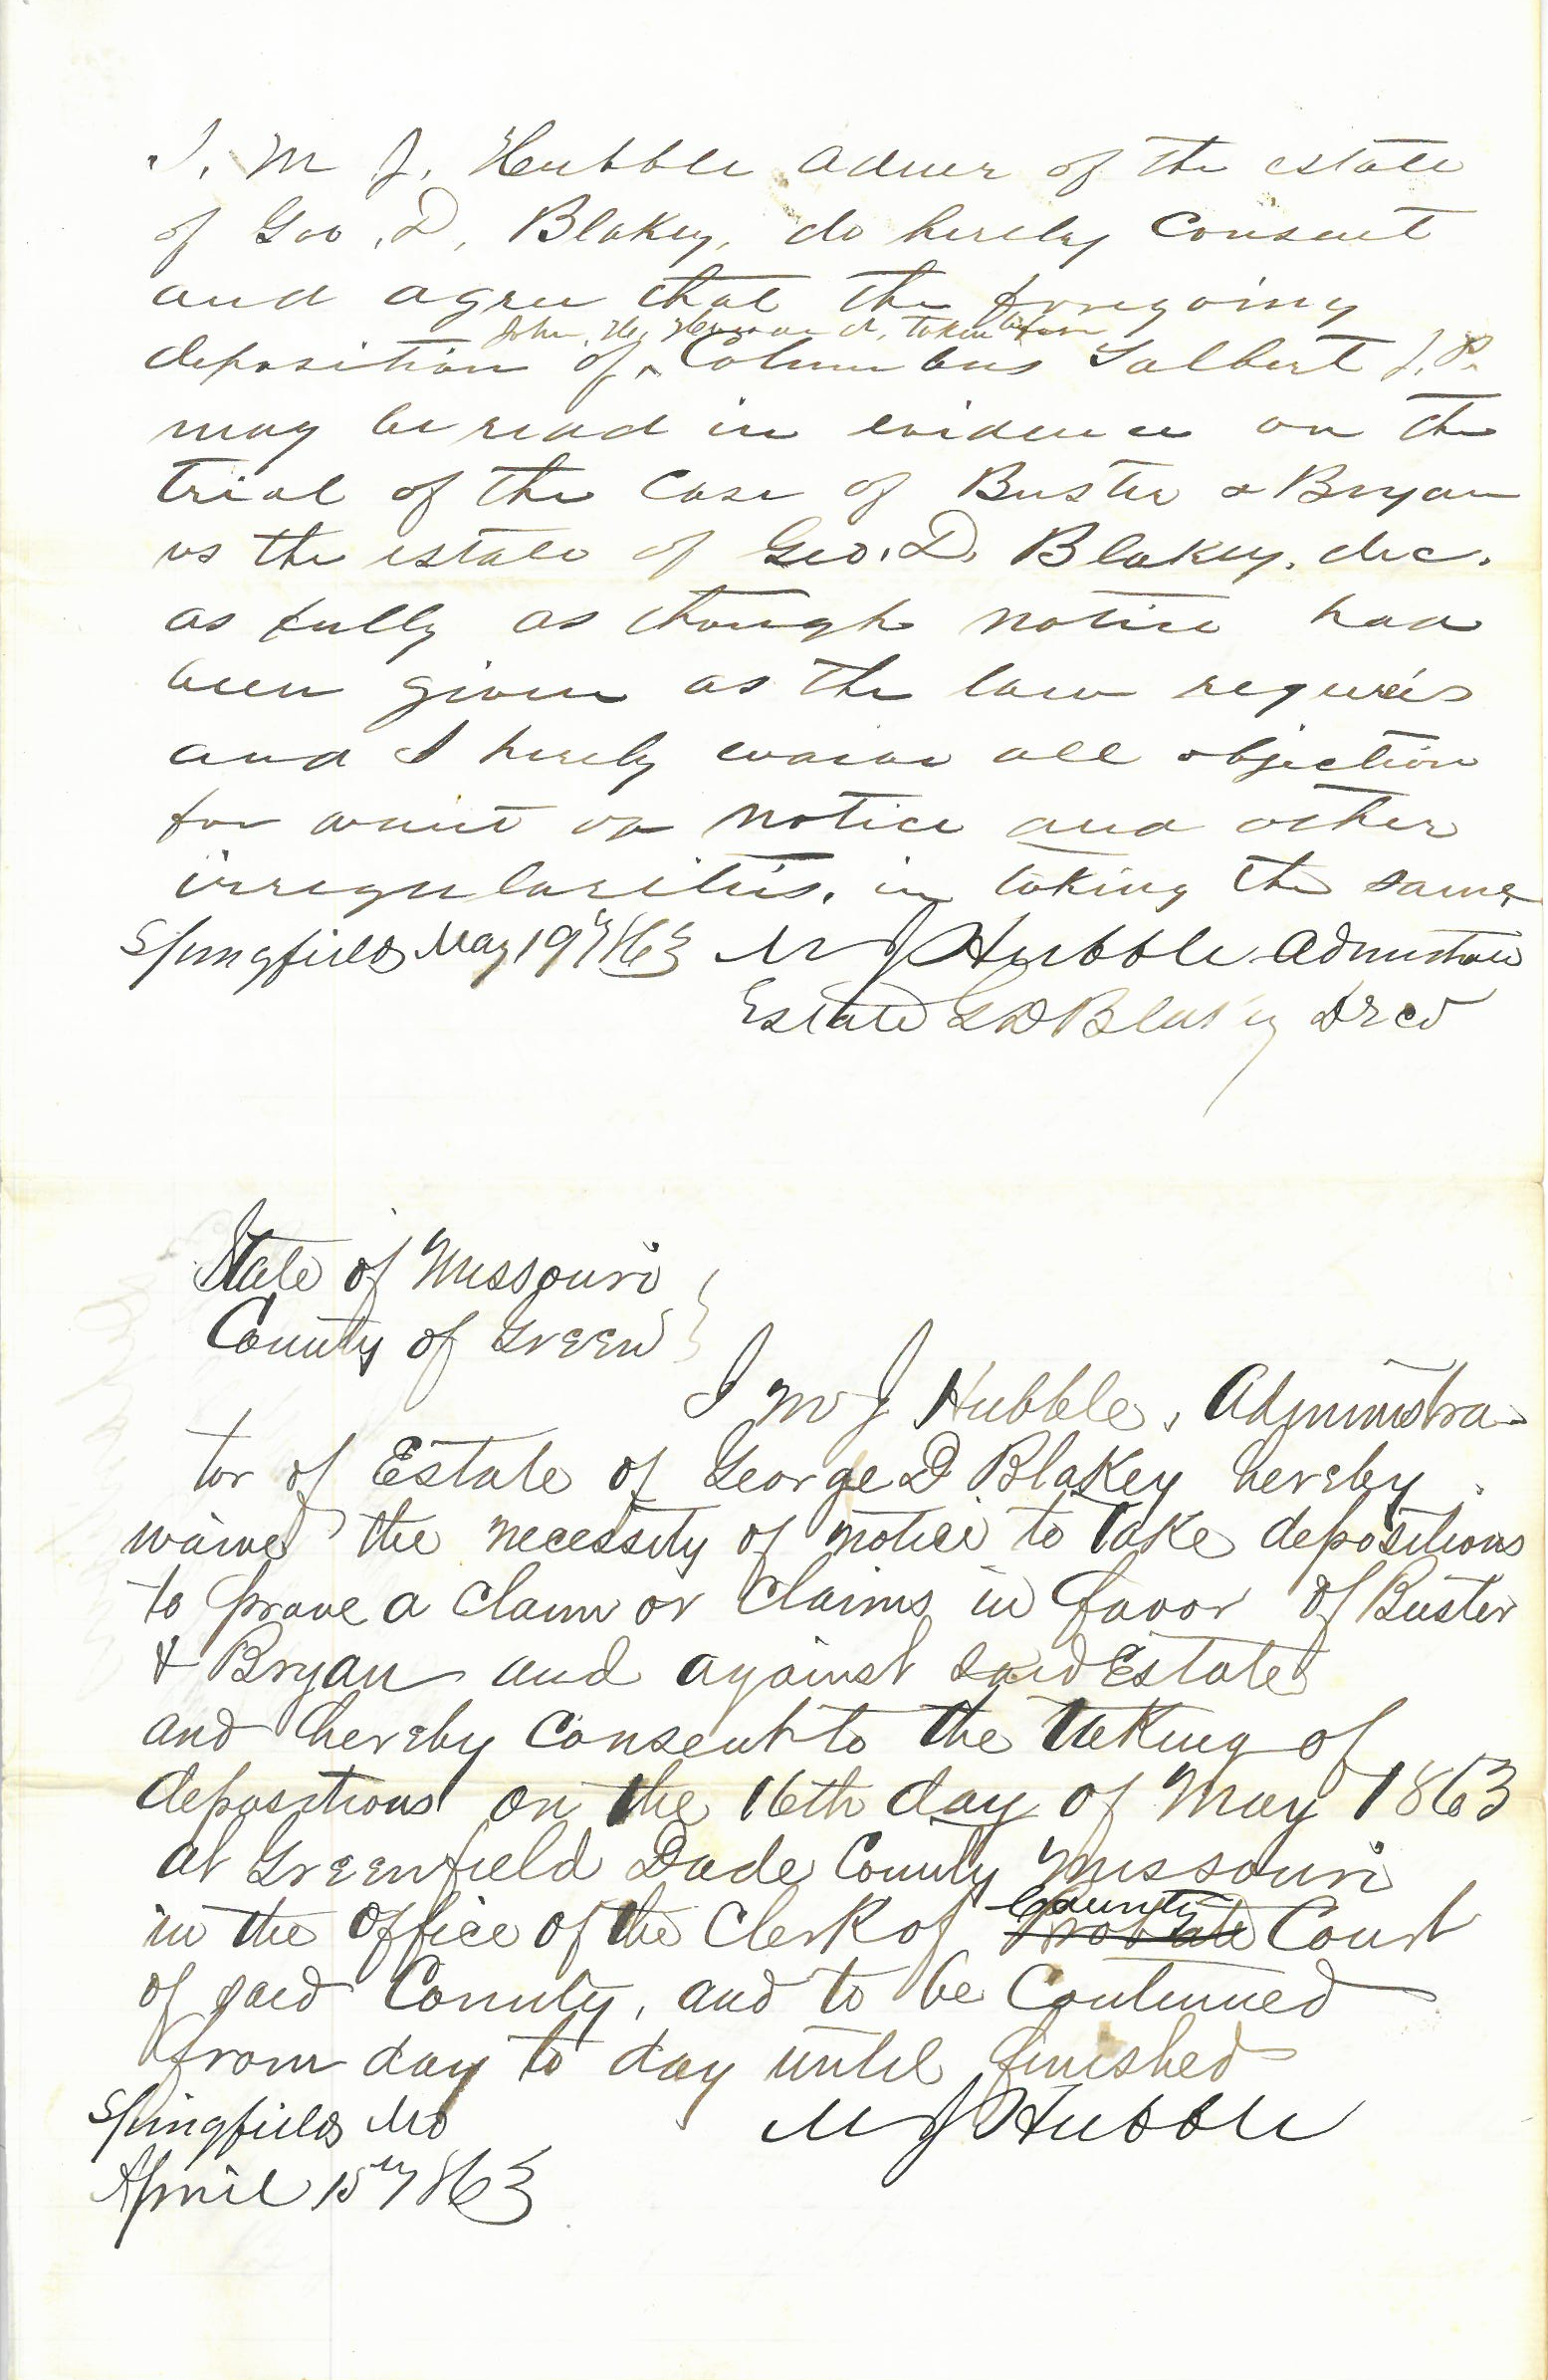 I, M J. Hubble Admr of the estate
of Geo. D. Blakey, do hereby Consent
and agree that the foregoing
John. H. taken before
deposition of ^ Columbus Talbert J.P.
may be read in evidence on the
trial of the Case of Buster & Bryan
vs the estate of Geo. D. Blakey. dec.
as fully as though notice had
been given as the law requires
and I hereby waive all objection
for want of notice and other
irregularities. in taking the same
Springfield May 19th 1863 M J Hubble Admnistrator
Estate G D Blakey Decd
State of Missouri }
County of Green }
I M J Hubble, Administra-
tor of Estate of George D Blakey hereby
waive the necessity of notice to take depositions
to prove a claim or claims in favor of Buster
& Bryan and against said Estate
and hereby Consent to the taking of
depositions on the 16th day of May 1863
at Greenfield Dade County Missouri
County
in the office of the Clerk of Probate Court
of said County, and to be Continued
from day to day until finished
Springfield Mo M J Hubble
April 15th 1863